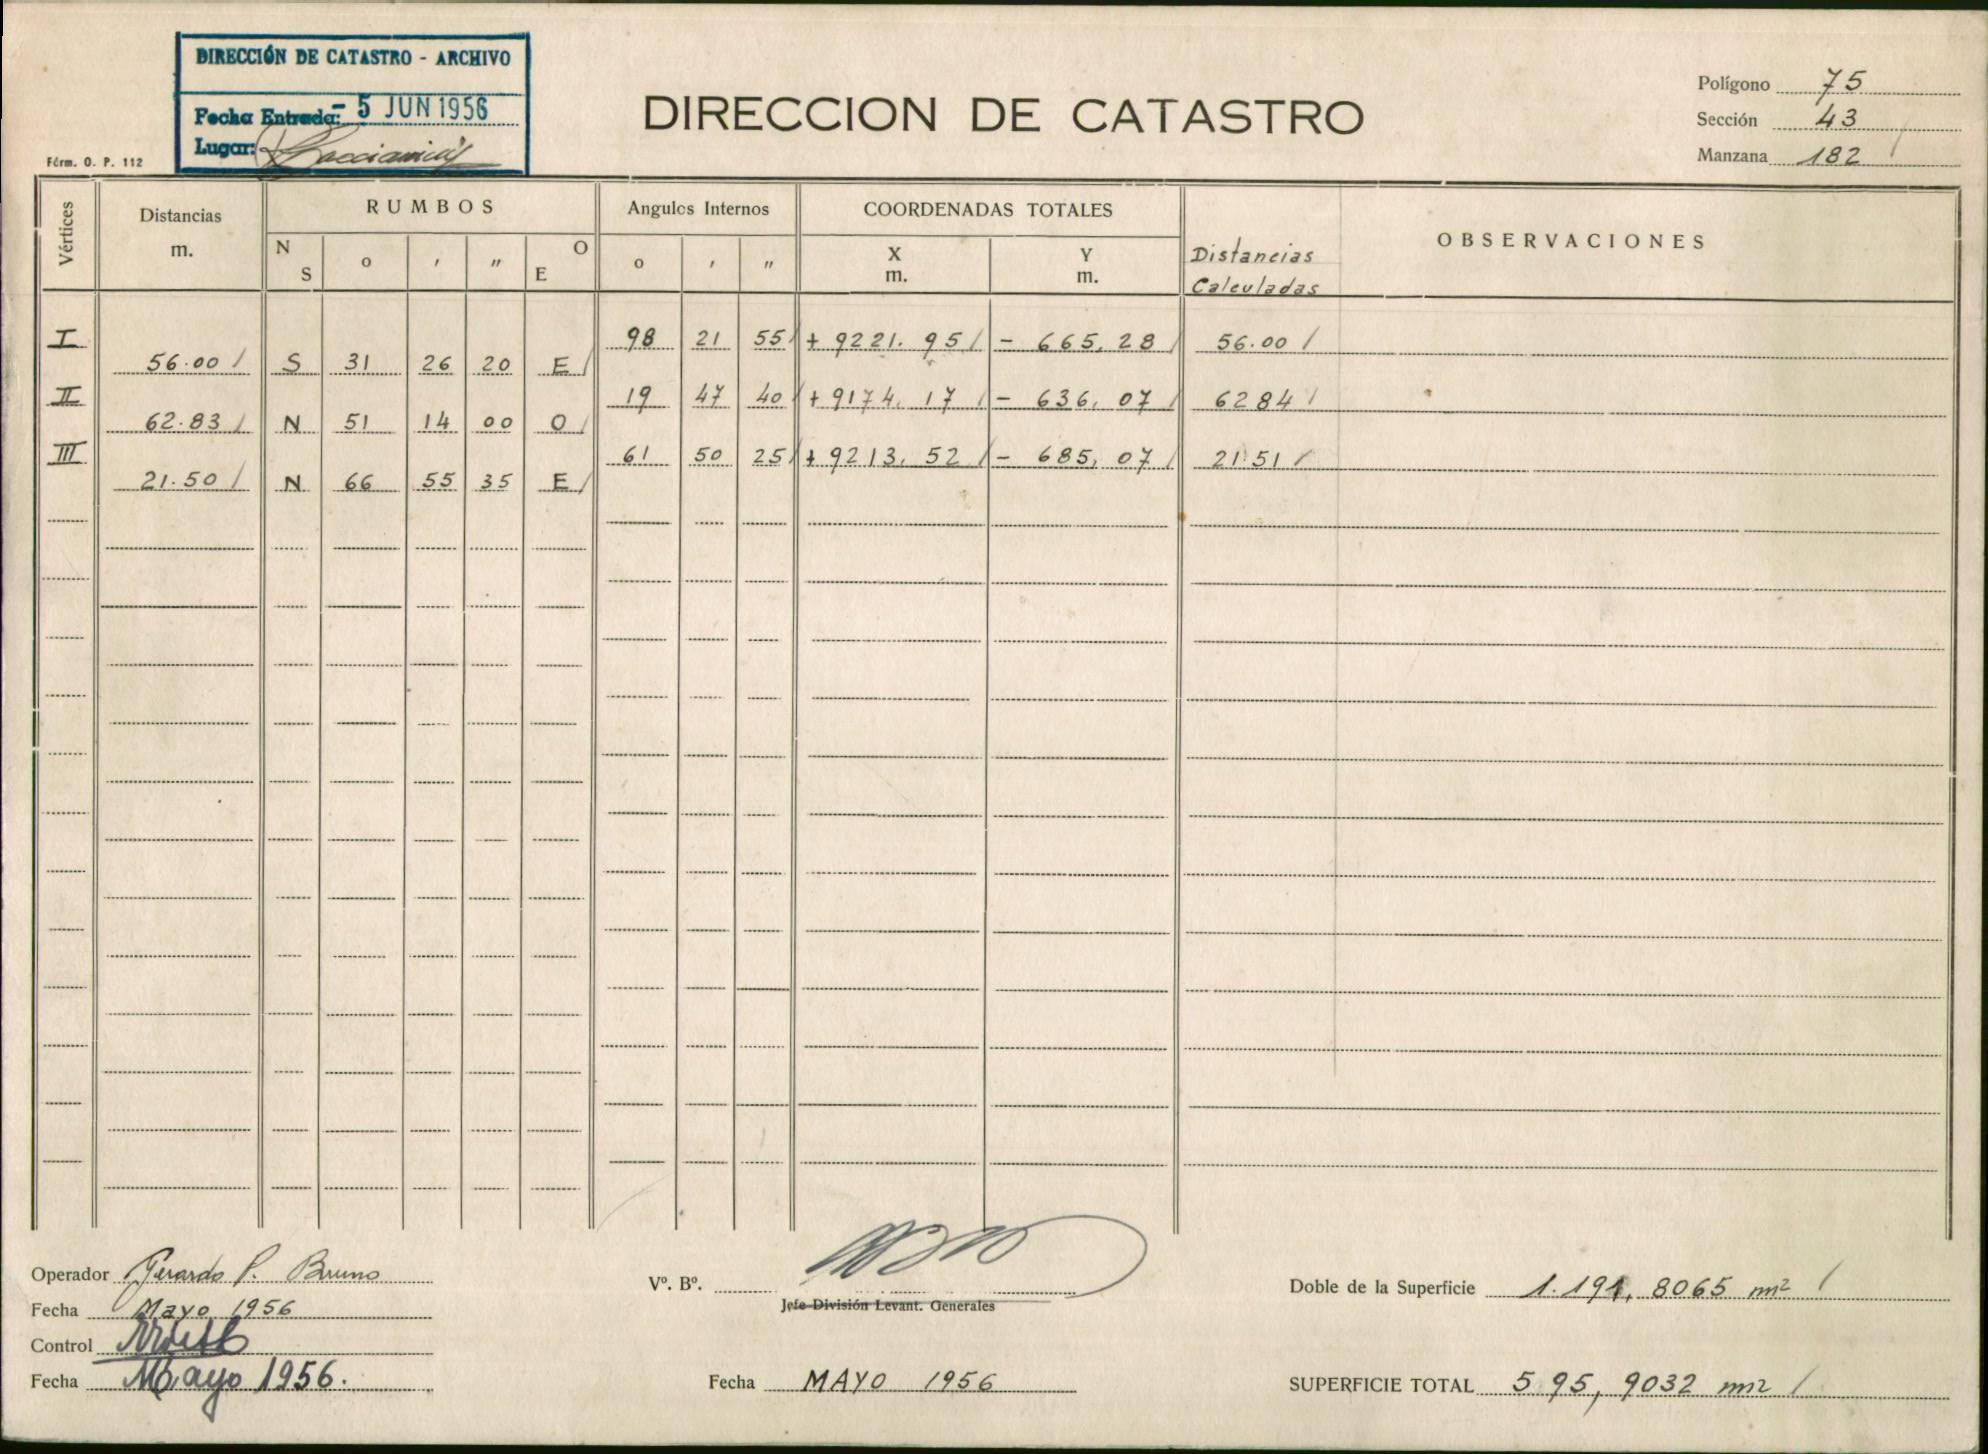 DIRECCIÓN DE CATASTRO - ARCHIVO
Fecha Entrada: - 5 JUN 1956
Lugar:
Fórm. O. P. 112
DIRECCION DE CATASTRO
Polígono 75
Sección 43
Manzana 182
Vértices Distancias m. RUMBOS Angulos Internos COORDENADAS TOTALES Distancias Calculadas OBSERVACIONES
N S o ' " O E o ' " X m. Y m.
I 98 21 55 + 9221.95 - 665,28 56.00
56.00 S 31 26 20 E
II 19 47 40 + 9174,17 - 636,07 62 84
62.83 N 51 14 00 O
III 61 50 25 + 9213,52 - 685,07 21.51
21.50 N 66 55 35 E
Operador Gerardo P. Bruno
Fecha Mayo 1956
Control
Fecha Mayo 1956.
Vº. Bº.
Jefe División Levant. Generales
Fecha MAYO 1956
Doble de la Superficie 1.191,8065 m2
SUPERFICIE TOTAL 595,9032 m2